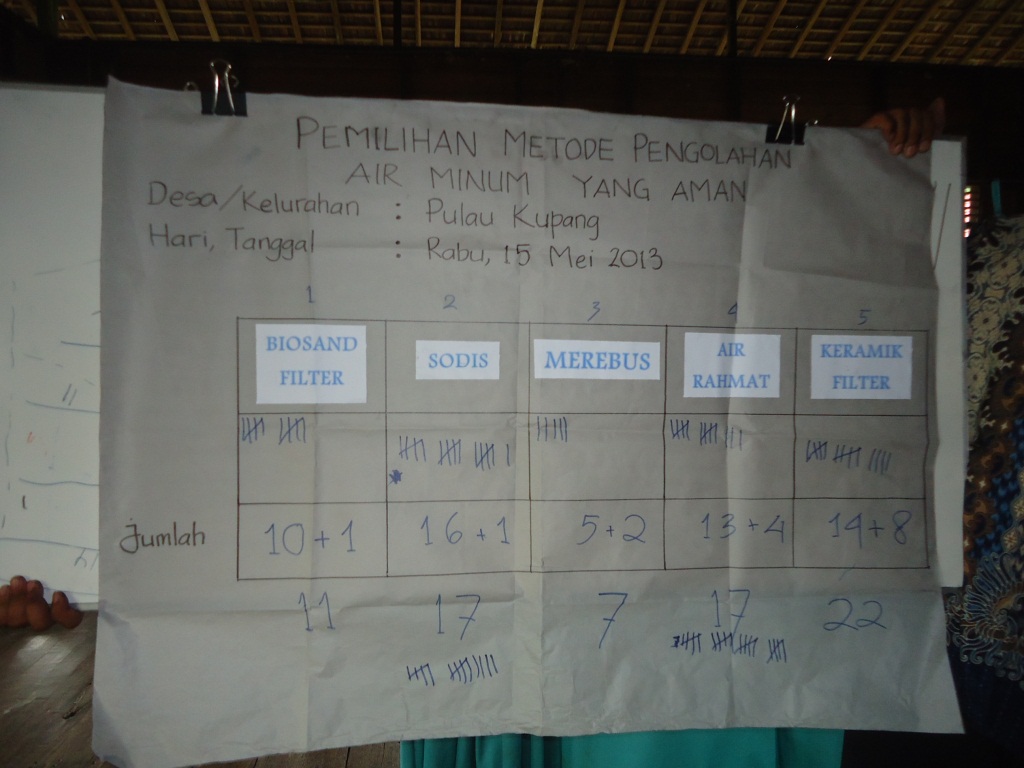 PEMILIHAN METODE PENGOLAHAN
AIR MINUM YANG AMAN
Desa/Kelurahan : Pulau Kupang
Hari, Tanggal : Rabu, 15 Mei 2013
1 2 3 4 5
BIOSAND FILTER
SODIS
MEREBUS
AIR RAHMAT
KERAMIK FILTER
Jumlah 10+1 16+1 5+2 13+4 14+8
11 17 7 17 22